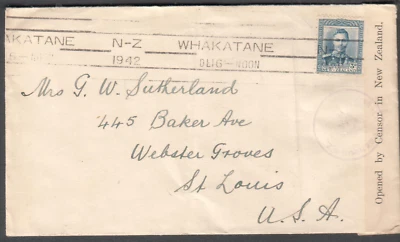 AKATANE N-Z WHAKATANE N
1942 9L16-NOON
Mrs G. W. Sutherland
445 Baker Ave
Webster Groves
St Louis
U.S.A.
Opened by Censor in New Zealand.